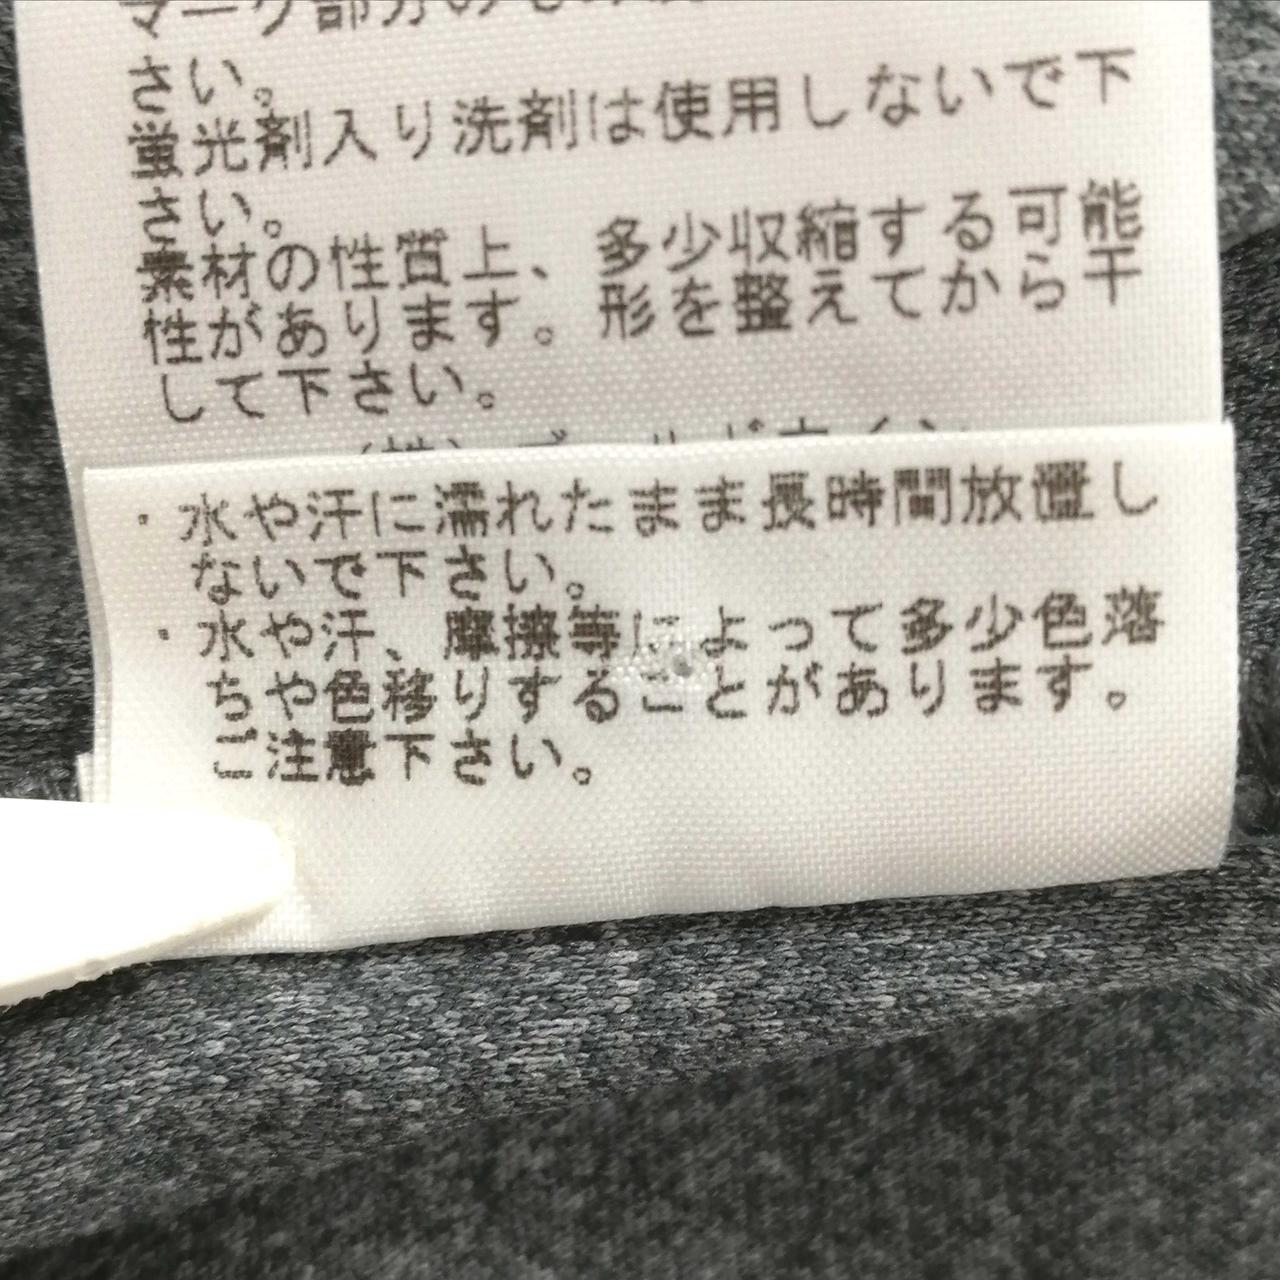 さい。
蛍光剤入り洗剤は使用しないで下
さい。
素材の性質上、多少収縮する可能
性があります。形を整えてから干
して下さい。
・水や汗に濡れたまま長時間放置し
ないで下さい。
・水や汗、摩擦等によって多少色落
ちや色移りすることがあります。
ご注意下さい。